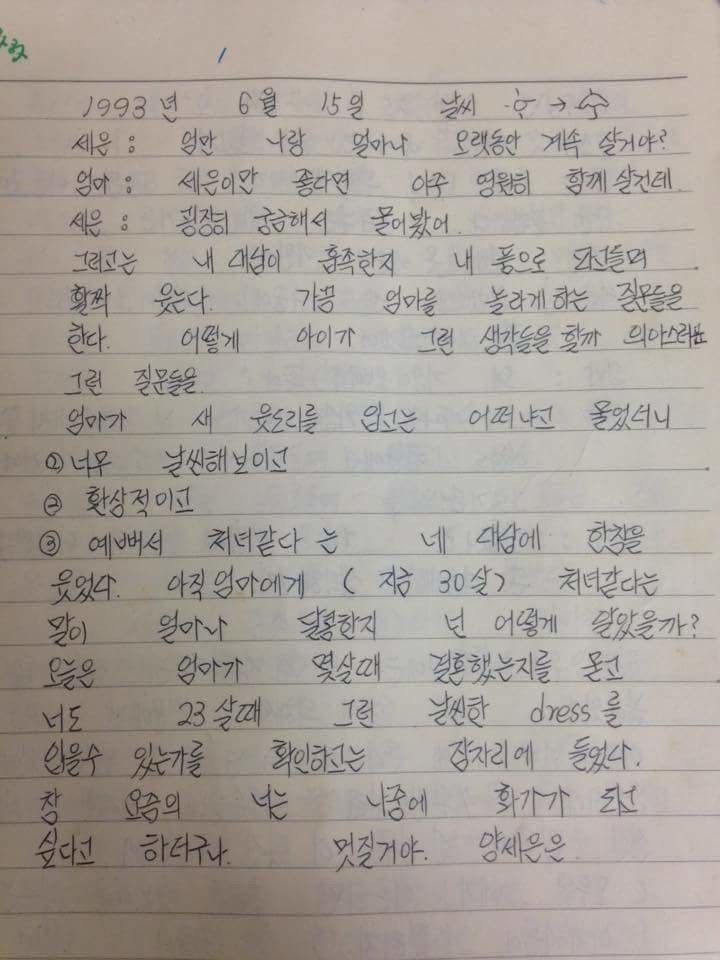 1
1993년 6월 15일 날씨 →
세은 : 엄만 나랑 얼마나 오랫동안 계속 살거야?
엄마 : 세은이만 좋다면 아주 영원히 함께 살건데.
세은 : 굉장히 궁금해서 물어봤어.
그러고는 내 대답이 흡족한지 내 품으로 파고들며
활짝 웃는다. 가끔 엄마를 놀라게 하는 질문들을
한다. 어떻게 아이가 그런 생각들을 할까 의아스러운
그런 질문들을.
엄마가 널 새 웃도리를 입고는 어떠냐고 물었더니
① 너무 날씬해보이고
② 환상적이고
③ 예뻐서 처녀같다 는 네 대답에 한참을
웃었다. 아직 엄마에게 (지금 30살) 처녀같다는
말이 얼마나 달콤한지 넌 어떻게 알았을까?
오늘은 엄마가 몇살때 결혼했는지를 묻고
너도 23살때 그런 날씬한 dress를
입을수 있는가를 확인하고는 잠자리에 들었다.
참 요즘의 너는 나중에 화가가 되고
싶다고 하더구나. 멋질거야. 양세은은